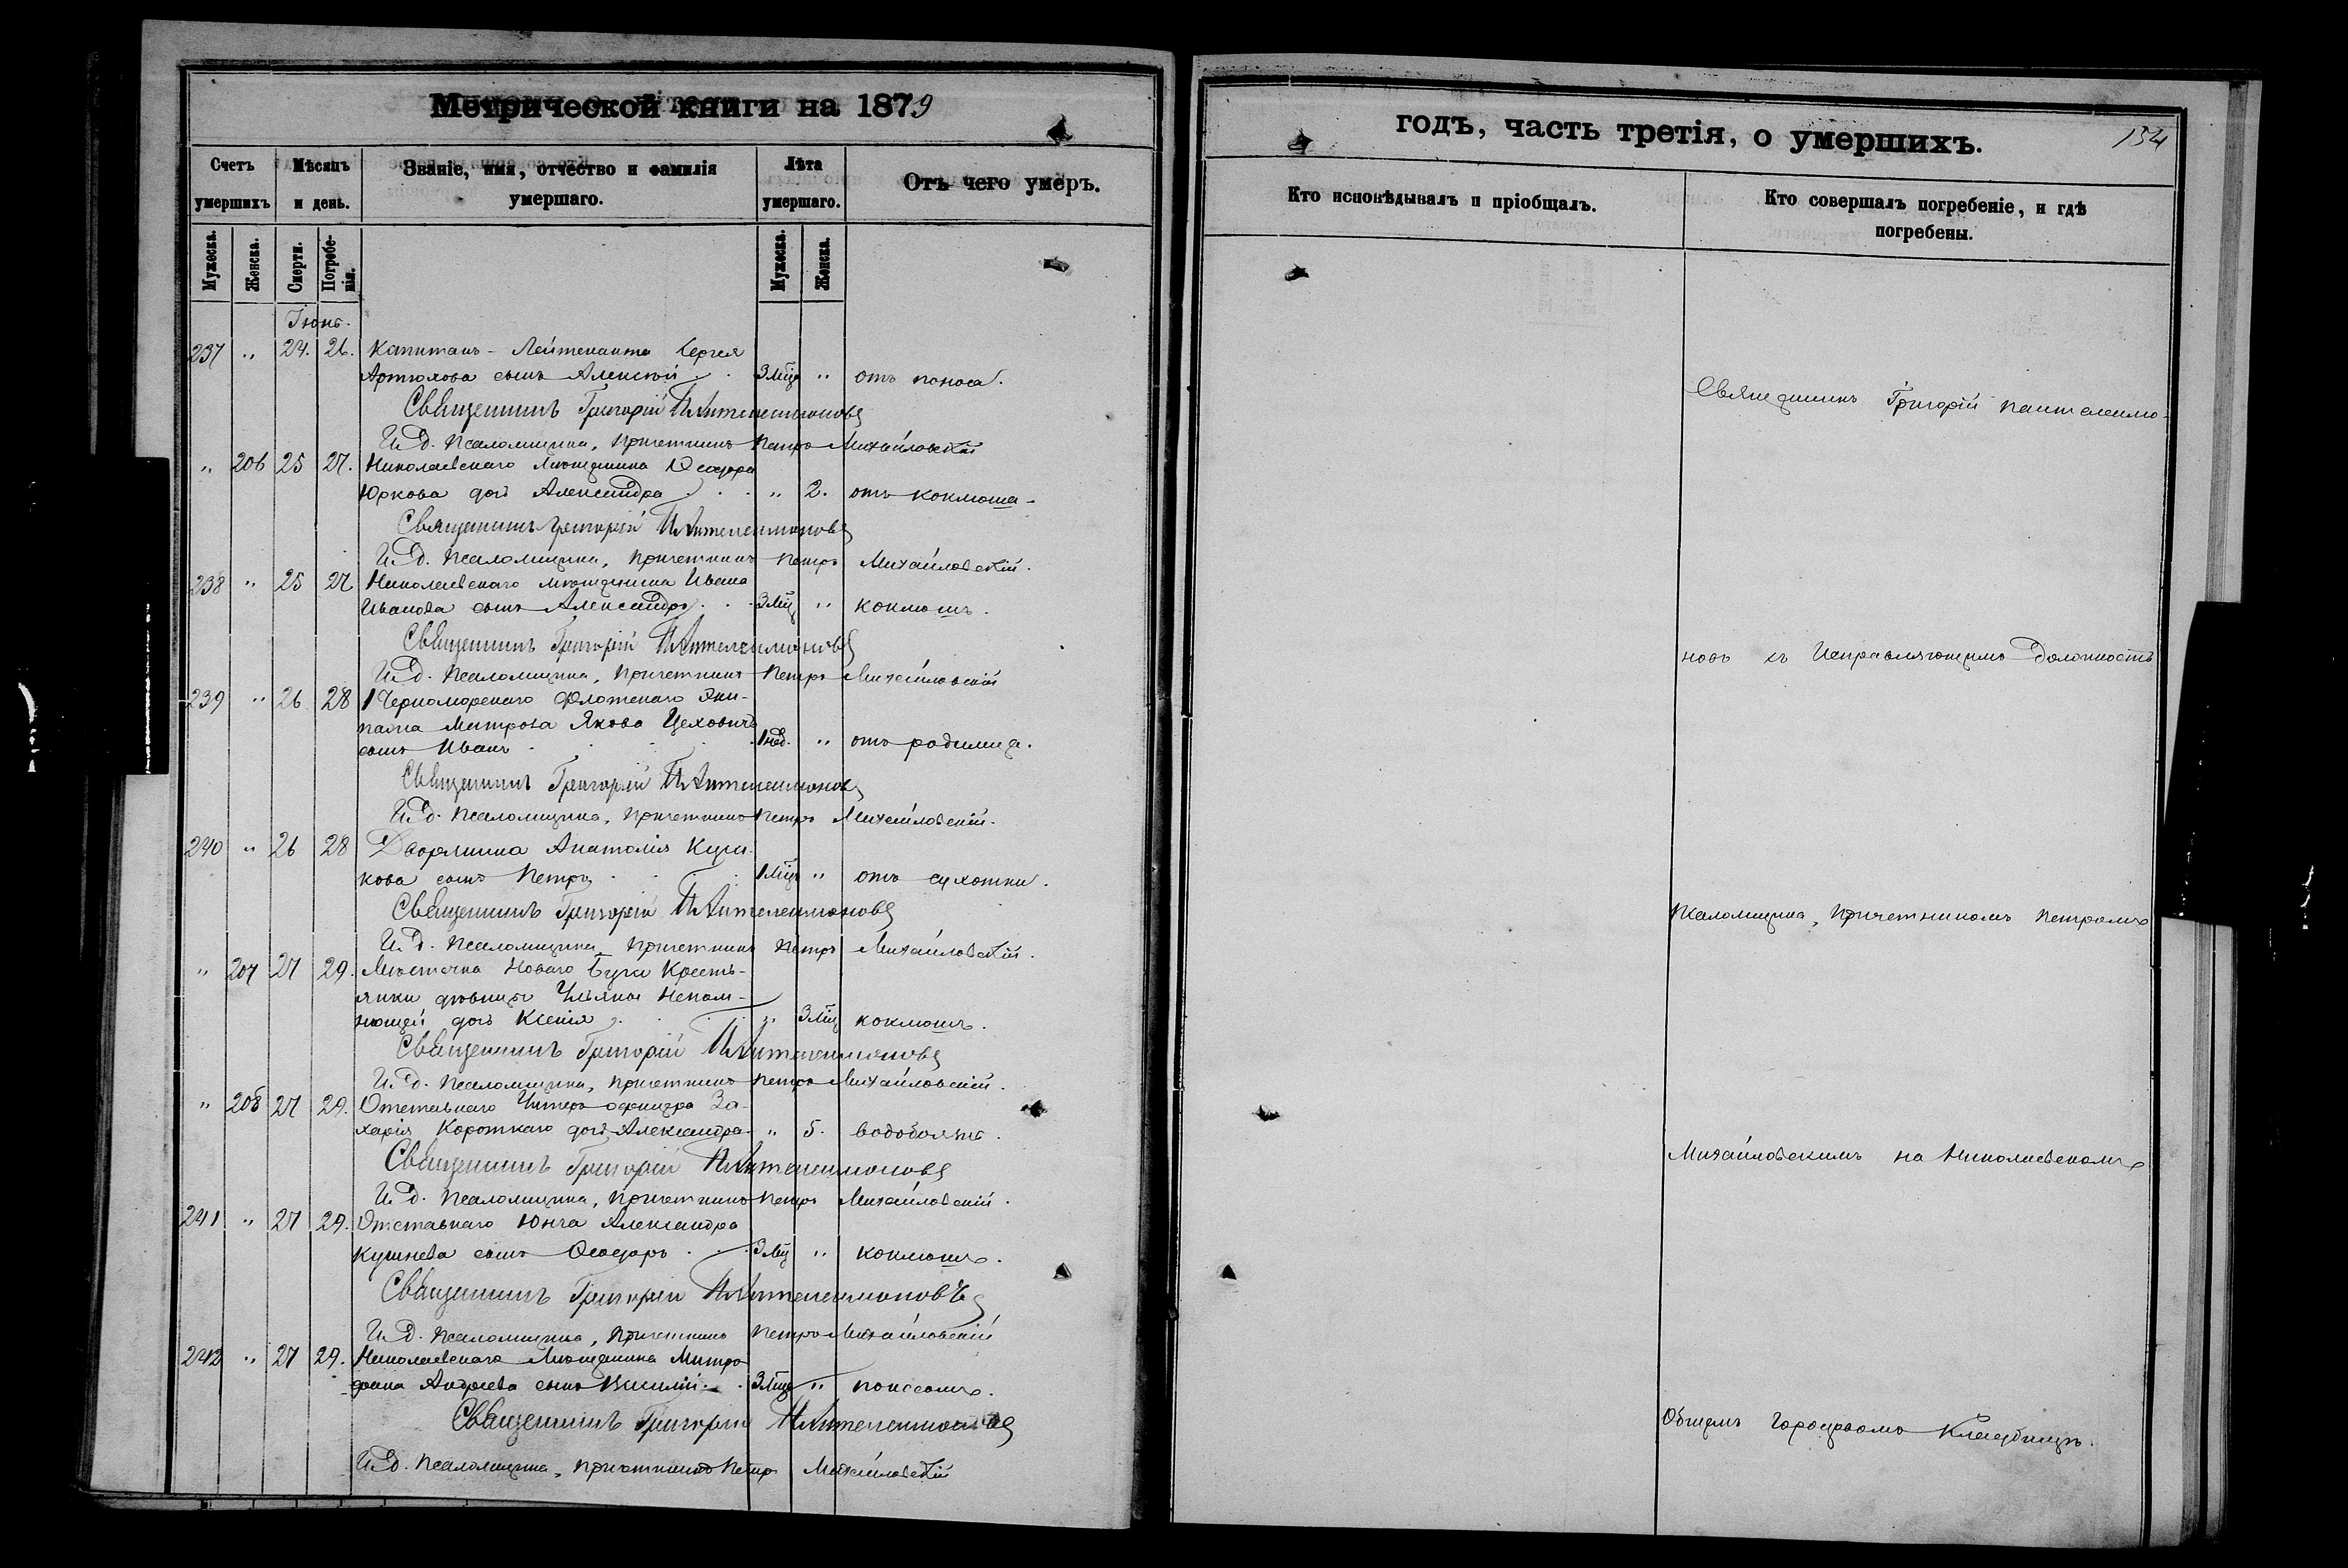 Метрической книги на 1879
Счетъ умершихъ
Мѣсяцъ и день.
Званіе, имя, отчество и фамилія умершаго.
Лѣта умершаго.
Отъ чего умеръ.
Мужеска.
Женска.
Смерти.
Погребенія.
Мужеска.
Женска.
Іюнь.
237 " 24. 26. Капитанъ-Лейтенанта Сергея
Артюхова сынъ Алексѣй . . 3 мѣц " отъ поноса.
Священникъ Григорій Пантелеимоновъ
И. д. Псаломщика, Причетникъ Петръ Михайловскій
" 206 25 27. Николаевскаго мѣщанина Ѳеодора
Юркова дочь Александра . . " 2. отъ коклюша.
Священникъ Григорій Пантелеимоновъ
И. д. Псаломщика, Причетникъ Петръ Михайловскій.
238 " 25 27 Николаевскаго мѣщанина Ивана
Иванова сынъ Александръ . . 3 мѣц " коклюшъ.
Священникъ Григорій Пантелеимоновъ
И. д. Псаломщика, Причетникъ Петръ Михайловскій
239 " 26 28 1 Черноморскаго Флотскаго Эки-
пажа Матроса Якова Цеховичъ
сынъ Иванъ . . . 1 нед. " отъ родимца.
Священникъ Григорій Пантелеимоновъ
И. д. Псаломщика, Причетникъ Петръ Михайловскій.
240 " 26 28 Дворянина Анатолія
кова сынъ Петръ . . . 1 мѣц " отъ сухотки.
Священникъ Григорій Пантелеимоновъ
И. д. Псаломщика, Причетникъ Петръ Михайловскій.
" 207 27 29. Мѣстечка Новаго Буга Кресть-
янки дѣвицы Ульяны Непом-
нющей дочь Ксенія . . . " 3 мѣц коклюшъ.
Священникъ Григорій Пантелеимоновъ
И. д. Псаломщика, Причетникъ Петръ Михайловскій.
" 208 27 29. Отставнаго Унтеръ офицера За-
харія Короткаго дочь Александра " 5. водобоязнь.
Священникъ Григорій Пантелеимоновъ
И. д. Псаломщика, Причетникъ Петръ Михайловскій.
241 " 27 29. Отставнаго Юнга Александра
Кушнева сынъ Ѳеодоръ . . 3 мѣц " коклюшъ.
Священникъ Григорій Пантелеимоновъ
И. д. Псаломщика, Причетникъ Петръ Михайловскій
242 " 27 29. Николаевскаго Мѣщанина Митро
фана Андреева сынъ Василій . . 3 мѣц " поносомъ.
Священникъ Григорій Пантелеимоновъ
И. д. Псаломщика, Причетникъ Петръ Михайловскій
годъ, часть третія, о умершихъ.
154
Кто исповѣдывалъ и пріобщалъ.
Кто совершалъ погребеніе, и гдѣ погребены.
Священникъ Григорій Пантелеимо-
новъ съ Исправляющимъ Должность
Псаломщика, Причетникомъ Петромъ
Михайловскимъ на Николаевскомъ
Общемъ Городскомъ Кладбищѣ.